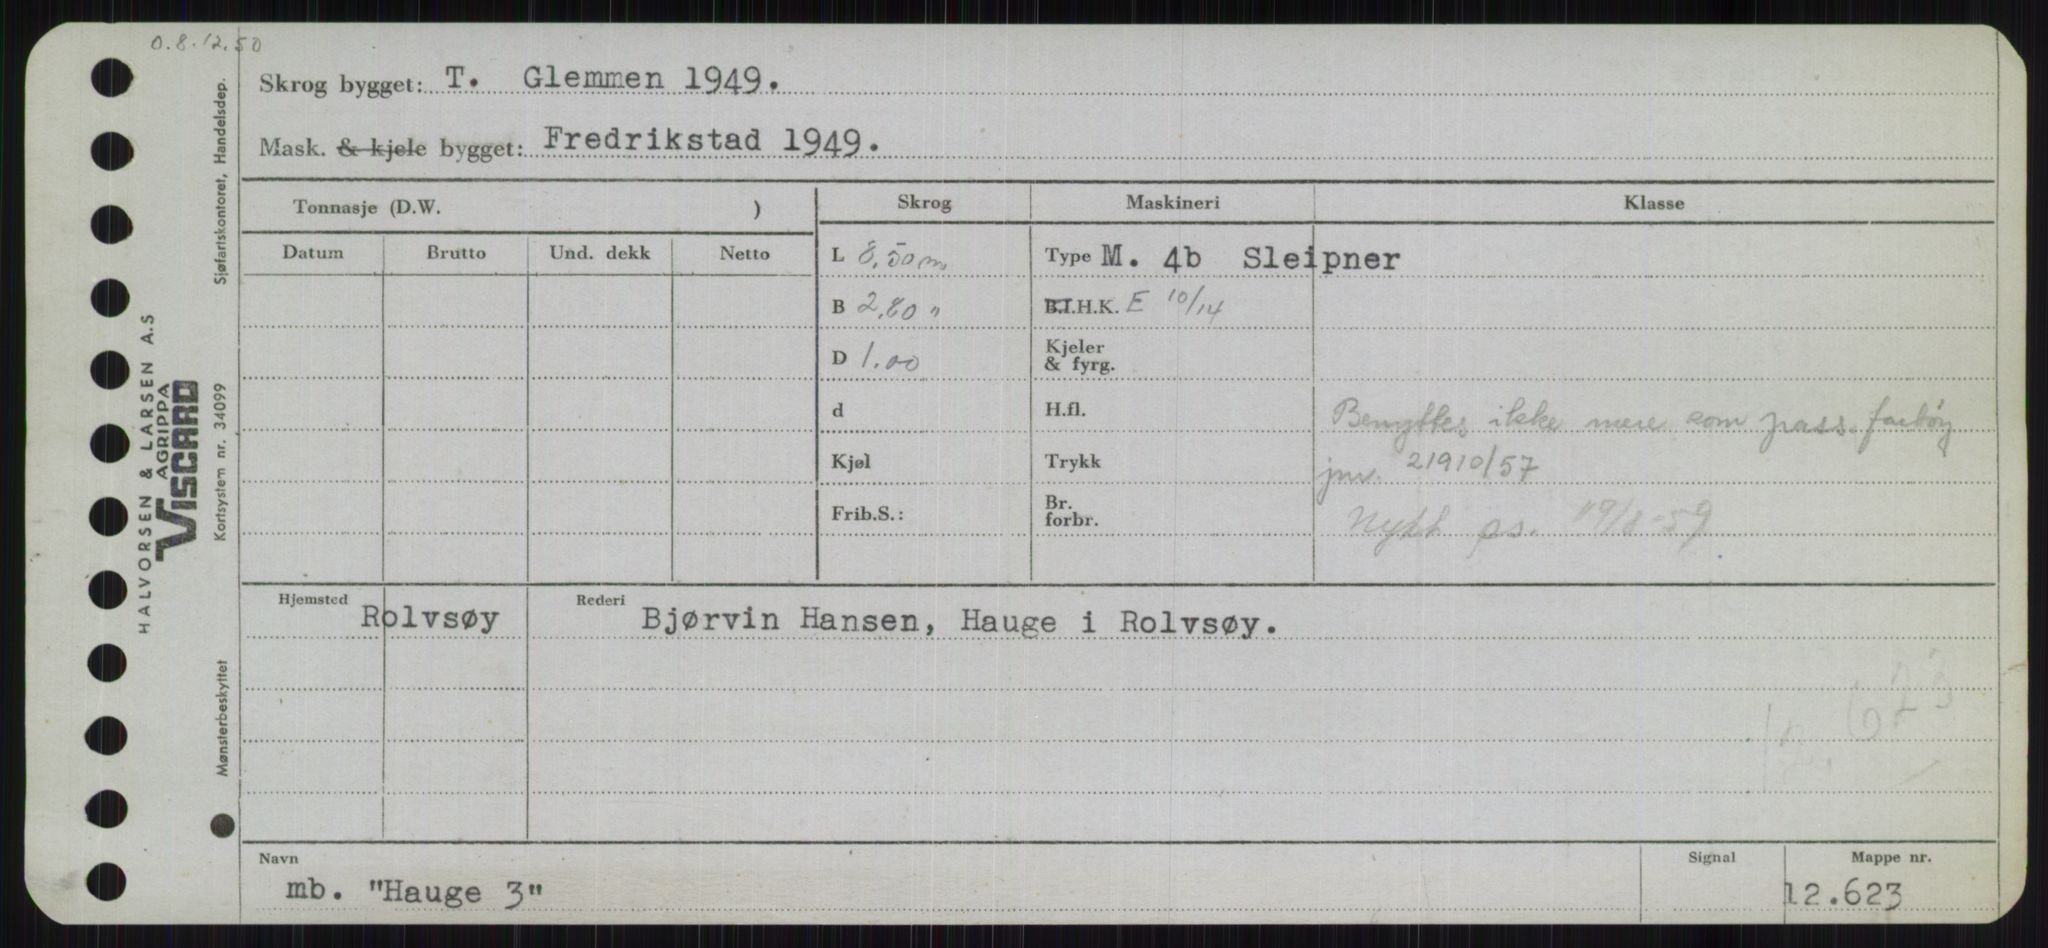 0.8.12.50
Skrog bygget: T. Glemmen 1949.
Mask. & kjele bygget: Fredrikstad 1949.
Tonnasje (D.W. )
Skrog
Maskineri
Klasse
Datum
Brutto
Und. dekk
Netto
L 8,50 m
Type M. 4b Sleipner
B 2,80 "
B.I.H.K. E 10/14
D 1.00
Kjeler
& fyrg.
d
H.fl.
Benyttes ikke mere som pass. fartøy
Kjøl
Trykk
jnr. 21910/57
Frib.S.:
Br.
forbr.
Nytt ps.
Hjemsted
Rolvsøy
Rederi
Bjørvin Hansen, Hauge i Rolvsøy.
623
Navn
mb. "Hauge 3"
Signal
Mappe nr.
12.623
HALVORSEN & LARSEN A.S
AGRIPPA
VISCARD
Mønsterbeskyttet
Kortsystem nr. 34099
Sjøfartskontoret, Handelsdep.